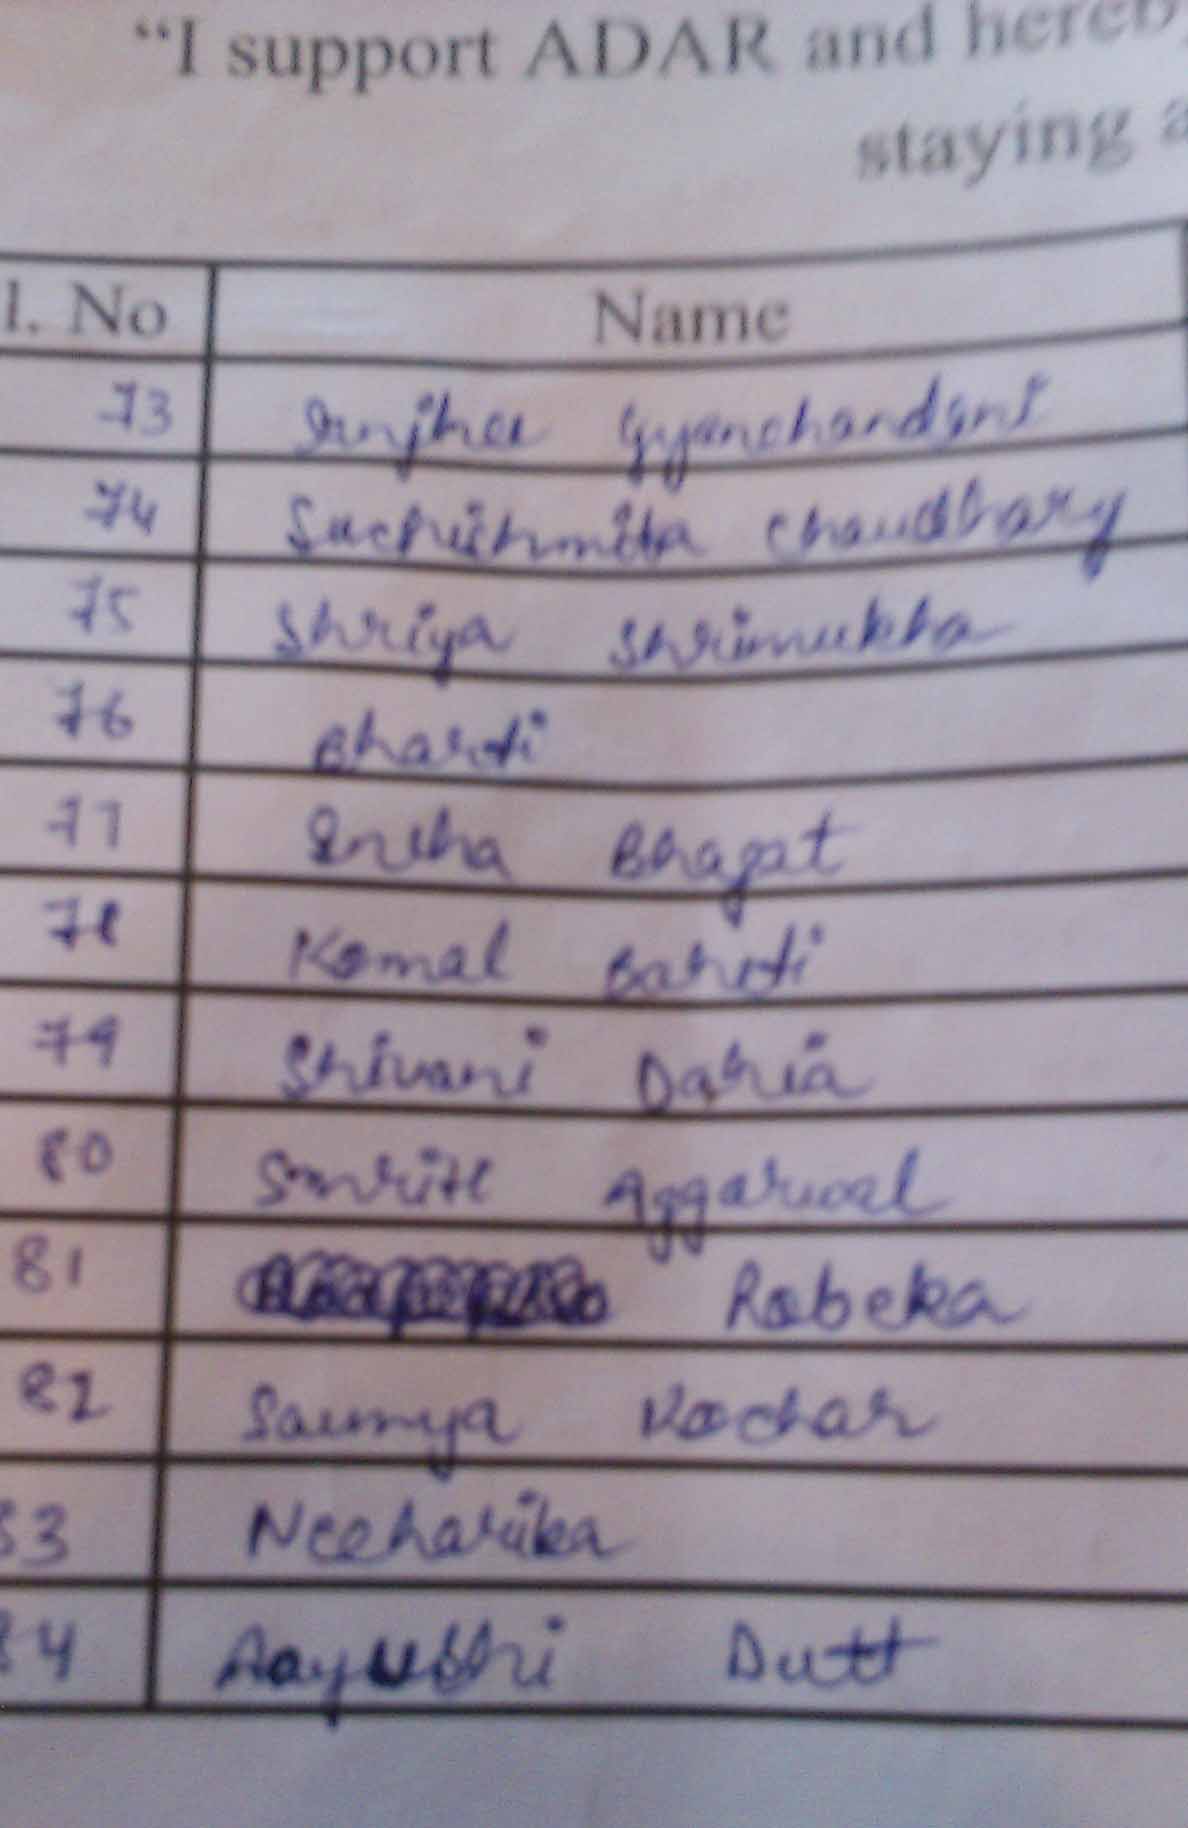 "I support ADAR and hereby
staying a
l. No Name
73 Gyanchandani
74 Suchishmita Chaudhary
75 Shriya Shrimukha
76 Bharti
77 Bhagat
78 Komal Bahoti
79 Shivani Dahia
80 Smriti Aggarwal
81 Robeka
82 Saumya Kochar
83 Neeharika
84 Aayushi Dutt